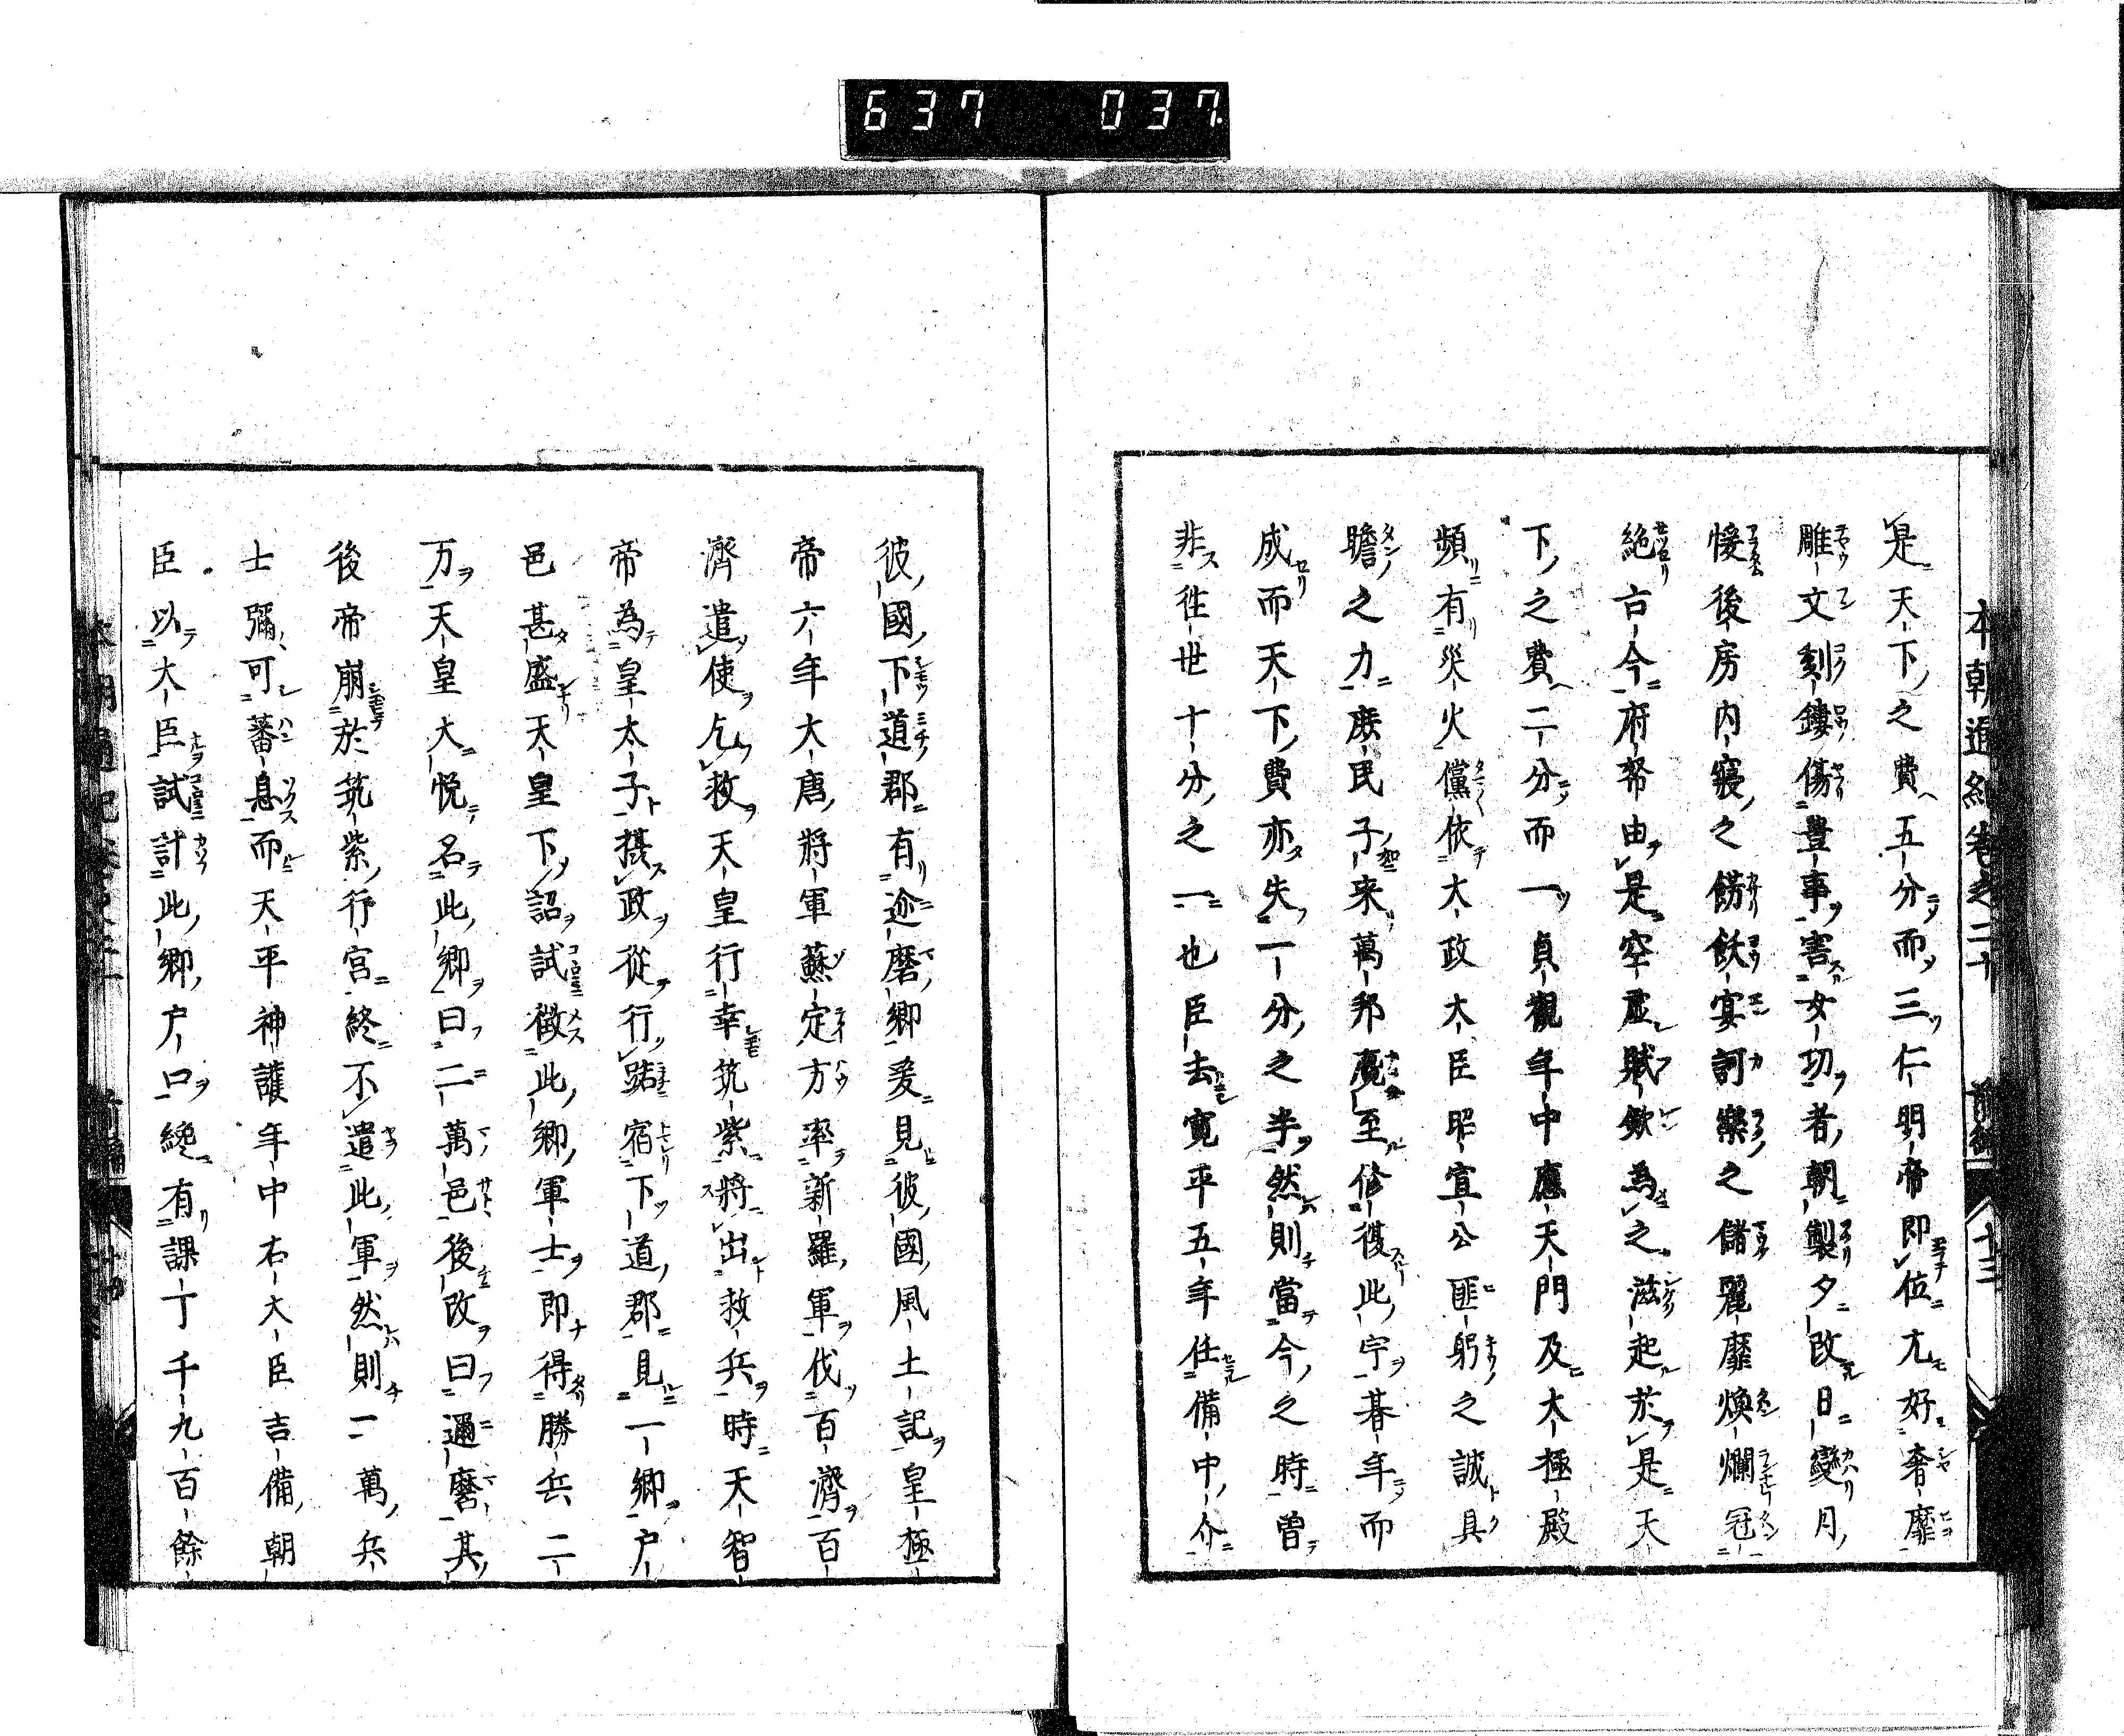 637 037
本朝通紀卷之二十 前編 十三
是天下之費五分而三仁明帝即位尤好奢靡
雕文刻鏤傷豊事害女功者朝製夕改日變月
悛後房内寝之餝飫宴訶樂之儲麗靡煥爛冠
絶古今府帑由是空虚賦歛為之滋起於是天
下之費二分而一貞觀年中應天門及大極殿
頻有災火儻依大政大臣昭宣公匪躬之誠具
瞻之力庶民子来萬邦麑至修復此宇暮年而
成而天下費亦失一分之半然則當今之時曽
非徃世十分之一也臣去寛平五年任備中介
彼國下道郡有迩磨郷爰見彼國風土記皇極
帝六年大唐將軍蘇定方率新羅軍伐百濟百
濟遣使乞救天皇行幸筑紫將出救兵時天智
帝為皇太子摂政從行路宿下道郡見一郷戸
邑甚盛天皇下詔試徴此郷軍士即得勝兵二
万天皇大悦名此郷曰二萬邑後改曰邇磨其
後帝崩於筑紫行宮終不遣此軍然則二萬兵
士彌可蕃息而天平神護年中右大臣吉備朝
臣以大臣試計此郷戸口纔有課丁千九百餘
本朝通紀卷之二十 前編 十四